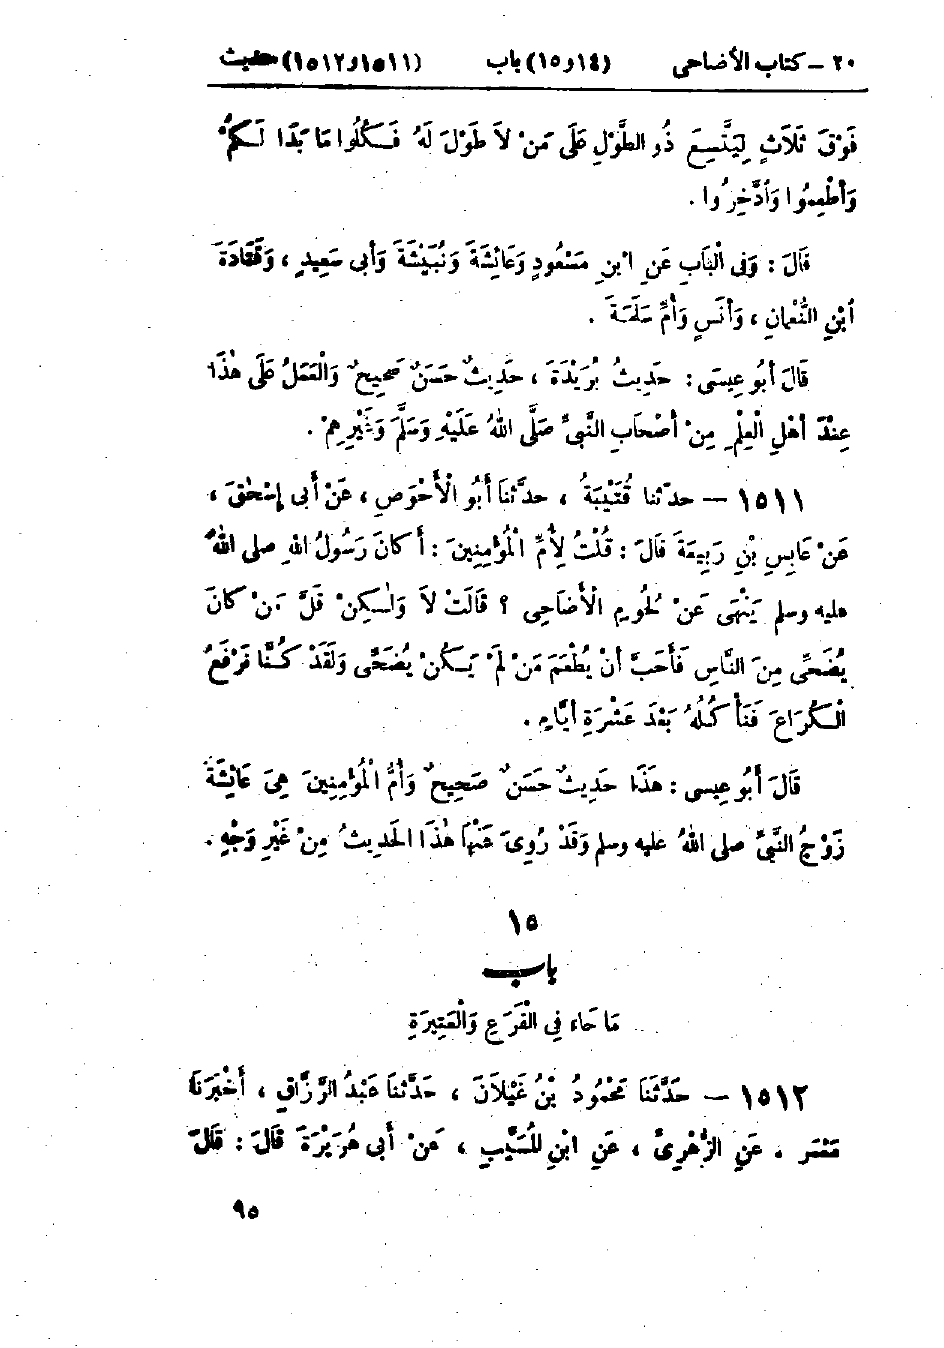 ٢٠ – كتاب الأضاحى (١٤و١٥) باب (١٥١١و١٥١٢) حديث
فَوْقَ ثَلَاثٍ لِيَتَّسِعَ ذُو الطَّوْلِ عَلَى مَنْ لاَ طَوْلَ لَهُ فَـكُلُوا مَا بَدَا لَـكُمْ
وَأَطْعِمُوا وَادَّخِرُوا .
قَالَ : وَفِى الْبَابِ عَنِ ابْنِ مَسْعُودٍ وَعَائِشَةَ وَنُبَيْشَةَ وَأَبِى سَعِيدٍ ، وَقَتَادَةَ
ابْنِ النُّعْمَانِ ، وَأَنَسٍ وَأُمِّ سَلَمَةَ .
قَالَ أَبُو عِيسَى : حَدِيثُ بُرَيْدَةَ ، حَدِيثٌ حَسَنٌ صَحِيحٌ وَالْعَمَلُ عَلَى هٰذَا
عِنْدَ أَهْلِ الْعِلْمِ مِنْ أَصْحَابِ النَّبِىِّ صَلَّى اللهُ عَلَيْهِ وَسَلَّمَ وَغَيْرِهِمْ .
١٥١١ – حدّثنا قُتَيْبَةُ ، حدَّثنَا أَبُو الْأَحْوَصِ ، عَنْ أَبِى إِسْحٰقَ ،
عَنْ عَابِسِ بْنِ رَبِيعَةَ قَالَ : قُلْتُ لِأُمِّ الْمُؤْمِنِينَ : أَكَانَ رَسُولُ اللهِ صلى اللهُ
عليه وسلم يَنْهَى عَنْ لُحُومِ الْأَضَاحِى ؟ قَالَتْ لاَ وَلٰـكِنْ قَلَّ مَنْ كَانَ
يُضَحِّى مِنَ النَّاسِ فَأَحَبَّ أَنْ يُطْعَمَ مَنْ لَمْ يَـكُنْ يُضَحِّى وَلَقَدْ كُنَّا نَرْفَعُ
الْـكُرَاعَ فَنَأْكُلُهُ بَعْدَ عَشْرَةِ أَيَّامٍ .
قَالَ أَبُو عِيسى : هَذَا حَدِيثٌ حَسَنٌ صَحِيحٌ وَأُمُّ الْمُؤْمِنِينَ هِىَ عَائِشَةُ
زَوْجُ النَّبِىِّ صلى اللهُ عليه وسلم وَقَدْ رُوِىَ عَنْهَا هٰذَا الحَدِيثُ مِنْ غَيْرِ وَجْهٍ .
١٥
باب
مَا جَاءَ فِى الْفَرَعِ وَالْعَتِيرَةِ
١٥١٢ – حَدَّثَنَا مَحْمُودُ بْنُ غَيْلاَنَ ، حَدَّثَنَا عَبْدُ الرَّزَّاقِ ، أَخْبَرَنَا
مَعْمَر ، عَنِ الزُّهْرِىِّ ، عَنِ ابْنِ الْمُسَيِّبِ ، عَنْ أَبِى هُرَيْرَةَ قَالَ : قَالَ
٩٥